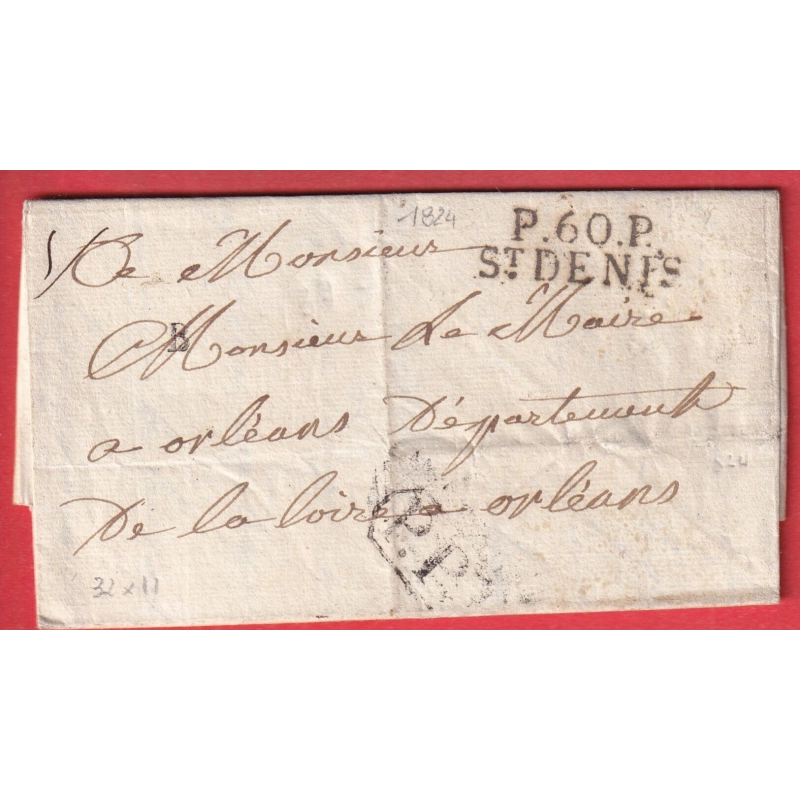 1824
P.60.P.
ST DENIS
A Monsieur
B
Monsieur Le Maire
a orléans Département
De la loire a orléans
P.P.
32 x 11